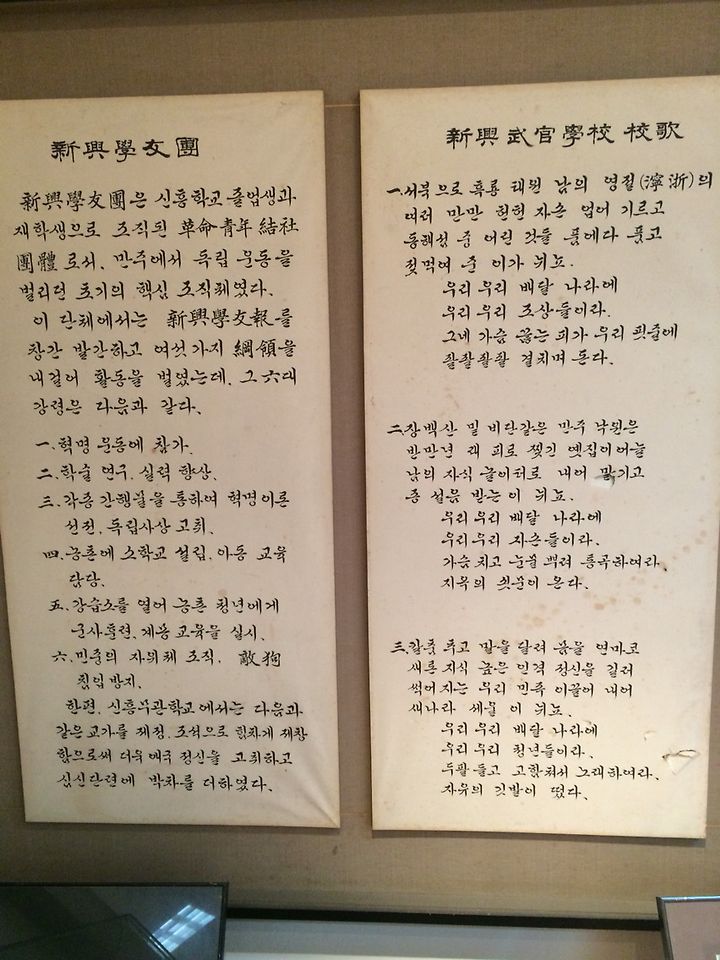 新興學友團
新興學友團은 신흥학교 졸업생과
재학생으로 조직된 革命靑年 結社
團體로서, 만주에서 독립 운동을
벌리던 초기의 핵심 조직체였다.
이 단체에서는 新興學友報를
창간 발간하고 여섯 가지 綱領을
내걸어 활동을 벌였는데, 그 六대
강령은 다음과 같다.
一. 혁명 운동에 참가.
二. 학술 연구, 실력 향상.
三. 각종 간행물을 통하여 혁명이론
선전, 독립사상 고취.
四. 농촌에 소학교 설립, 아동 교육
담당.
五. 강습소를 열어 농촌 청년에게
군사훈련, 계몽 교육을 실시.
六. 민중의 자위체 조직, 敵狗
침입 방지.
한편, 신흥무관학교에서는 다음과
같은 교가를 제정, 조석으로 힘차게 제창
함으로써 더욱 애국 정신을 고취하고
심신단련에 박차를 더하였다.
新興武官學校 校歌
一. 서북으로 흑룡 태원 남의 영절(濘浙)의
여러 만만 헌헌 자손 업어 기르고
동해섬 중 어린 것들 품에다 품고
젖먹여 준 이가 뉘뇨.
우리 우리 배달 나라에
우리 우리 조상들이라.
그네 가슴 끓는 피가 우리 핏줄에
좔좔좔좔 결치며 돈다.
二. 장백산 밑 비단같은 만주 낙원은
반만년 래 피로 젖긴 옛집이어늘
남의 자식 놀이터로 내어 맡기고
종 설움 받는 이 뉘뇨.
우리 우리 배달 나라에
우리 우리 자손들이라.
가슴 치고 눈물 뿌려 통곡하여라,
지옥의 쇳문이 온다.
三. 칼춤 추고 말을 달려 몸을 연마코
새론 지식 높은 인격 정신을 길러
썩어지는 우리 민족 이끌어 내어
새나라 세울 이 뉘뇨.
우리 우리 배달 나라에
우리 우리 청년들이라.
두팔 들고 고함쳐서 노래하여라,
자유의 깃발이 떴다.